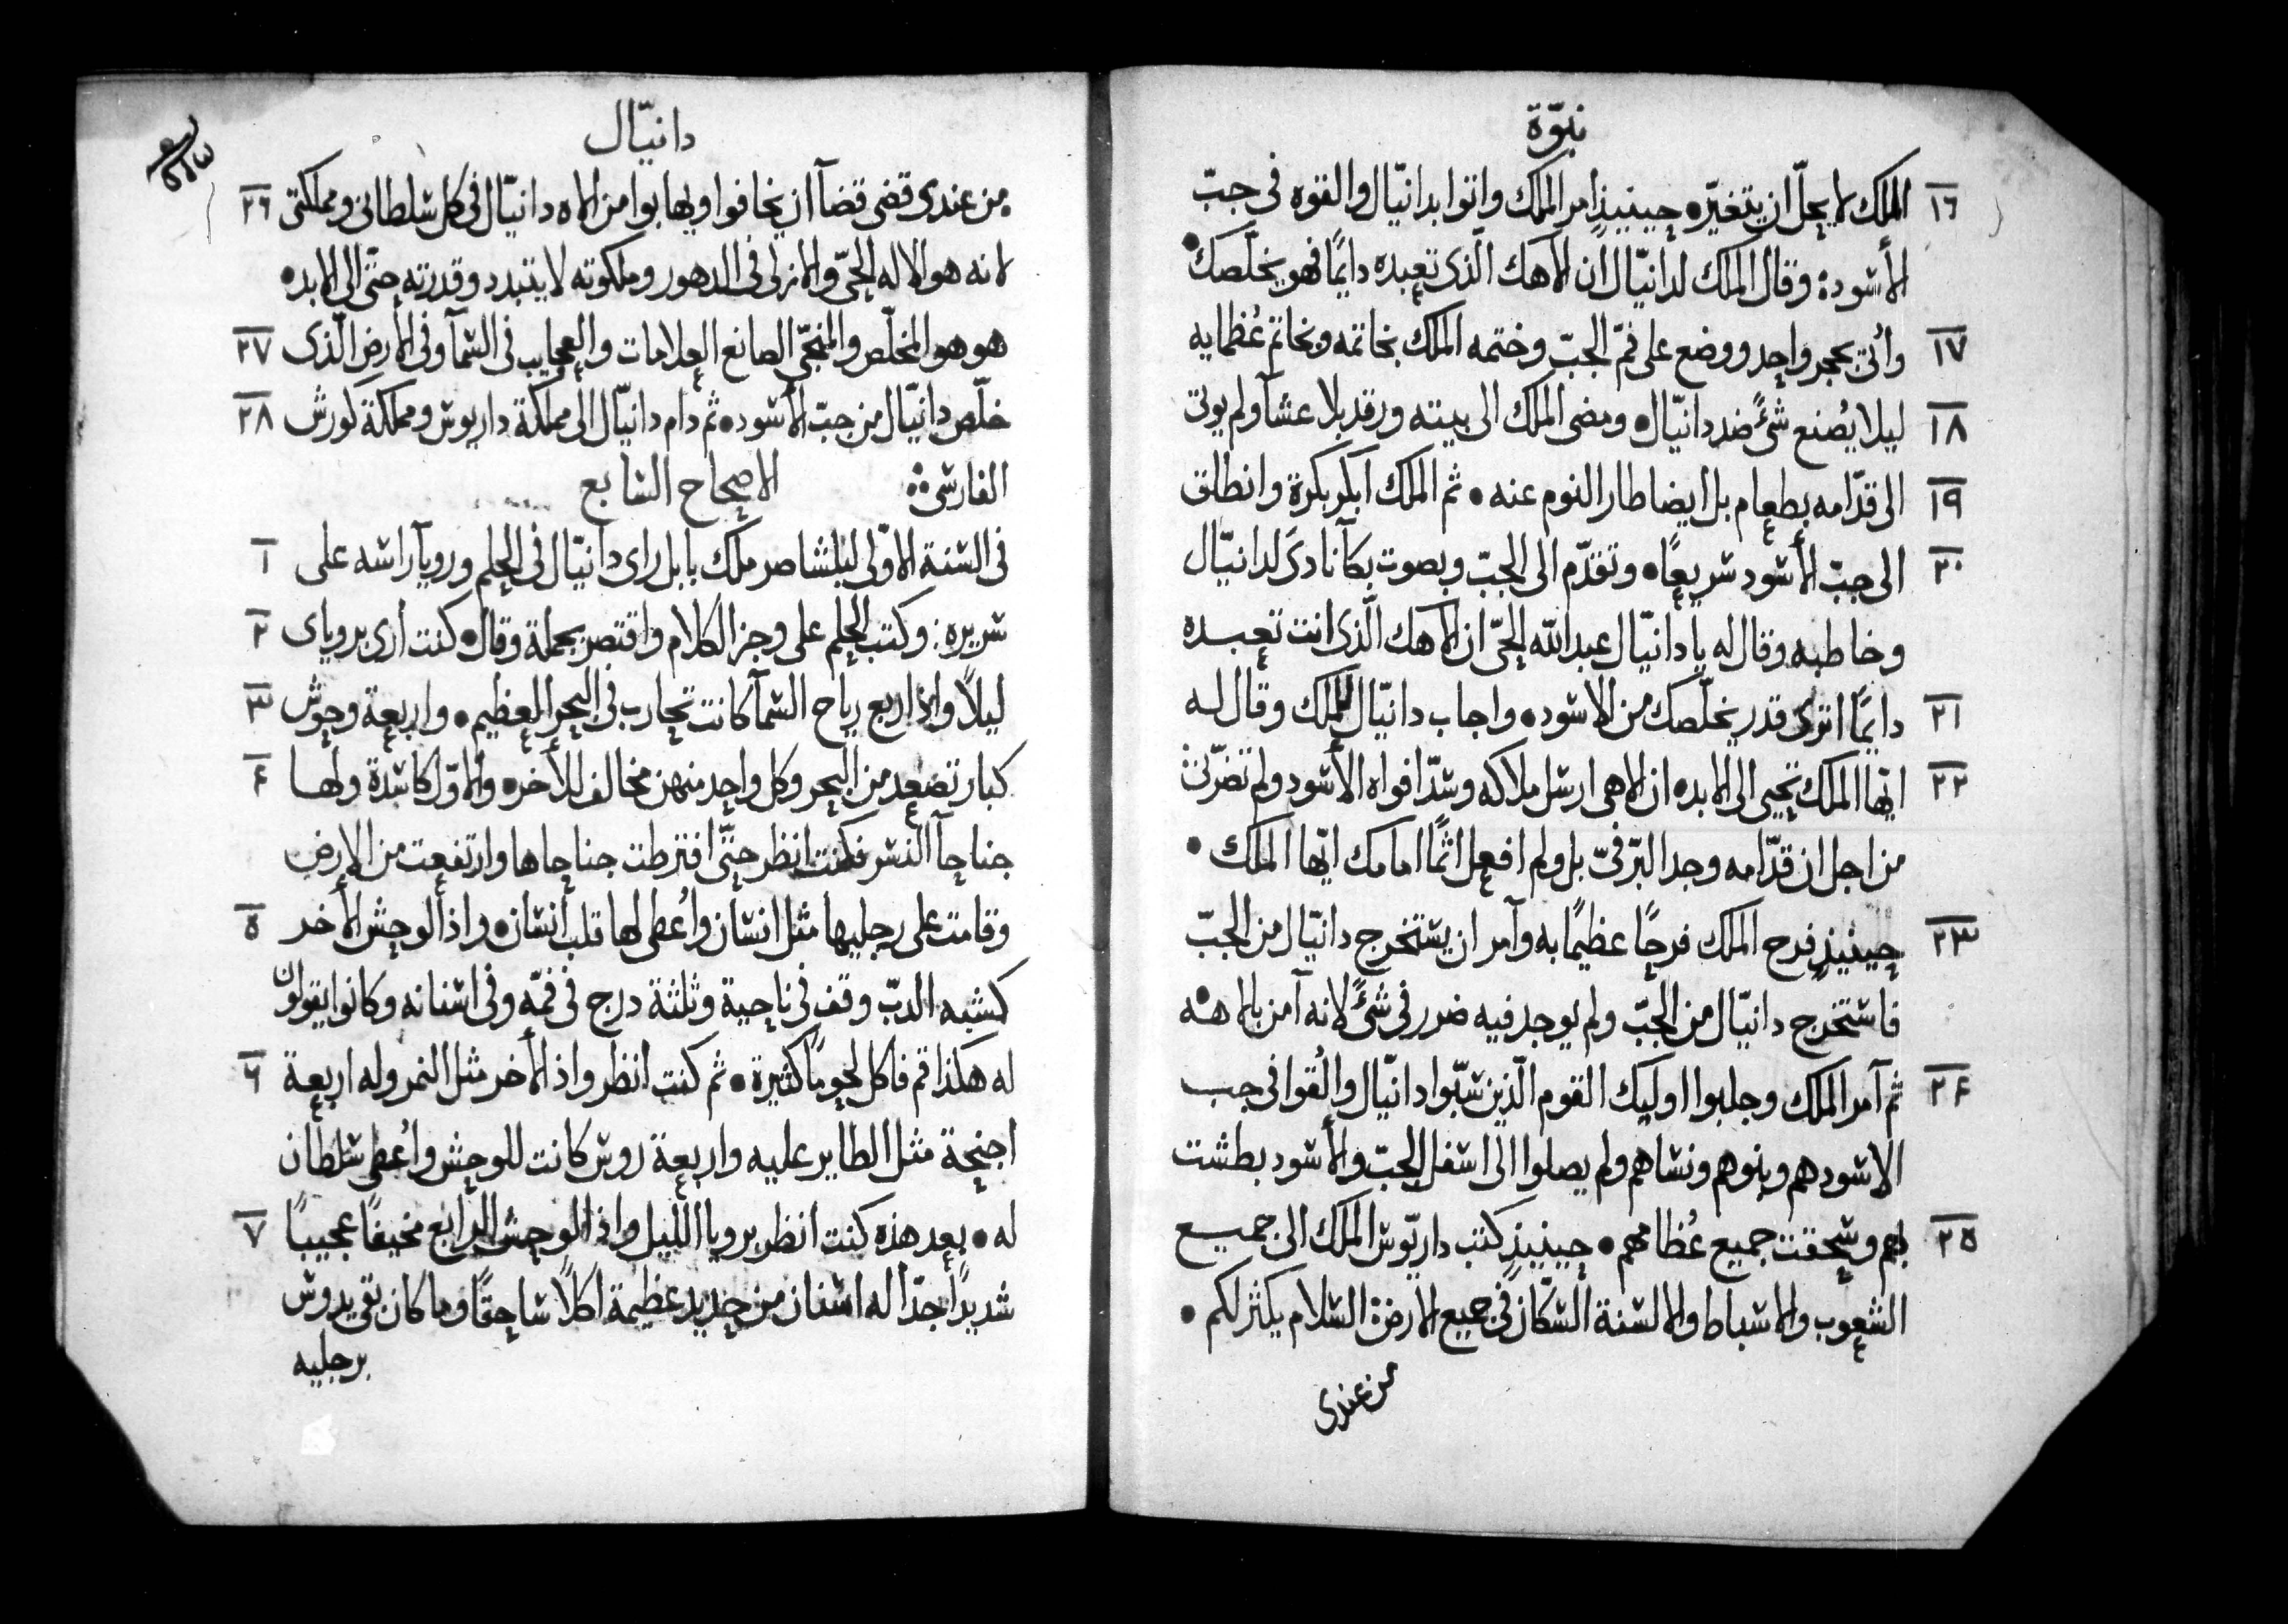 نبوّة
١٦ الملك لا يحلّ ان يتغيّر • حينيذٍ امر الملك واتوا بدانيّال والقوه فى جبّ
الأسود • وقال الملك لدانيّال ان الاهك الّذى تعبده دايمًا فهو يخلّصك •
١٧ وأتى بحجر واحد ووضع على فمّ الجبّ وختمه الملك بخاتمه وبخاتم عُظمايه
١٨ ليلا يُصنع شئً ضد دانيّال • ومضى الملك الى بيته ورقد بلا عشآ ولم يوتى
١٩ الى قدّامه بطعام بل ايضا طار النوم عنه • ثم الملك ابكر بكرة وانطلق
٢٠ الى جبّ الأسود سريعًا • وتقدّم الى الجبّ وبصوت بكآ نادى لدانيّال
وخاطبه وقال له يا دانيّال عبد الله الحىّ ان الاهك الّذى انت تعبده
٢١ دايمًا اترى قدر يخلّصك من الاسود • واجاب دانيّال للملك وقال له
٢٢ ايّها الملك تحيى الى الابد • ان الاهى ارسل ملاكه وسدّ افواه الأسود ولم تضرّنى
من اجل ان قدّامه وجد البرّ فىّ بل ولم افعل اثمًا امامك ايّها الملك •
٢٣ حينيذٍ فرح الملك فرحًا عظيمًا به وآمر ان يستخرج دانيّال من الجبّ
فاستخرج دانيّال من الجبّ ولم يوجد فيه ضرر فى شئً لانه آمن بالاهه
٢٤ ثم آمر الملك وجلبوا اوليك القوم الّذين سبّوا دانيّال والُقوا فى جب
الاسود هم وبنوهم ونساهم ولم يصلوا الى اسفل الجبّ والأسود بطشت
٢٥ بهم وسحقت جميع عُظامهم • حينيذٍ كتب داريّوس الملك الى جميع
الشعوب والاسباط والالسنة السّكان فى جميع الارض السّلام يكثر لكم •
من عندى
دانيّال
من عندى قضى قضآ ان يخافوا ويهابوا من الاه دانيّال فى كل سلطانى ومملكتى ٢٦
لانه هو الاله الحىّ والازلى فى الدهور وملكوته لا يتبدد وقدرته حتّى الى الابد •
هو هو المخلّص والمنجّى الصانع العلامات والعجايب فى السمآ وفى الأرض الّذى ٢٧
خلّص دانيّال من جبّ الأسود • ثم دام دانيّال الى مملكة داريوس ومملكة كورش ٢٨
الفارسى الاصحاح السابع
فى السنة الاوّلى لبلشاصر ملك بابل راى دانيّال فى الحلم ورويآ راسه على ١
سريره • وكتب الحلم على وجز الكلام واقتصر بجملة وقال • كنت أرى بروياى ٢
ليلاً واذ اربع رياح السمآ كانت تحارب فى البحر العظيم • واربعة وحوش ٣
كبار تصعد من البحر وكل واحد منهن مخالف للأخر • والاوّل كاسدة ولها ٤
جناحآ النسر فكنت انظر حتّى افترطت جناحاها وارتفعت من الارض
وقامت على رجليها مثل انسان واُعطى لها قلب انسان • واذ الوحش الأخر ٥
كشبه الدبّ وقف فى ناحية وثلثة درج فى فمّه وفى اسنانه وكانوا يقولون
له هكذا قم فاكل لحومًا كثيرة • ثم كنت انظر واذ الأخر مثل النمر وله اربعة ٦
اجنحة مثل الطاير عليه واربعة روس كانت للوحش واُعطى سلطان
له • بعد هذه كنت انظر برويا الليل واذ الوحش الرابع مخيفًا عجيبًا ٧
شديدًا جدّا له اسنان من حديد عظيمة اكلاً ساحقًا وما كان بقى يدوس
برجليه